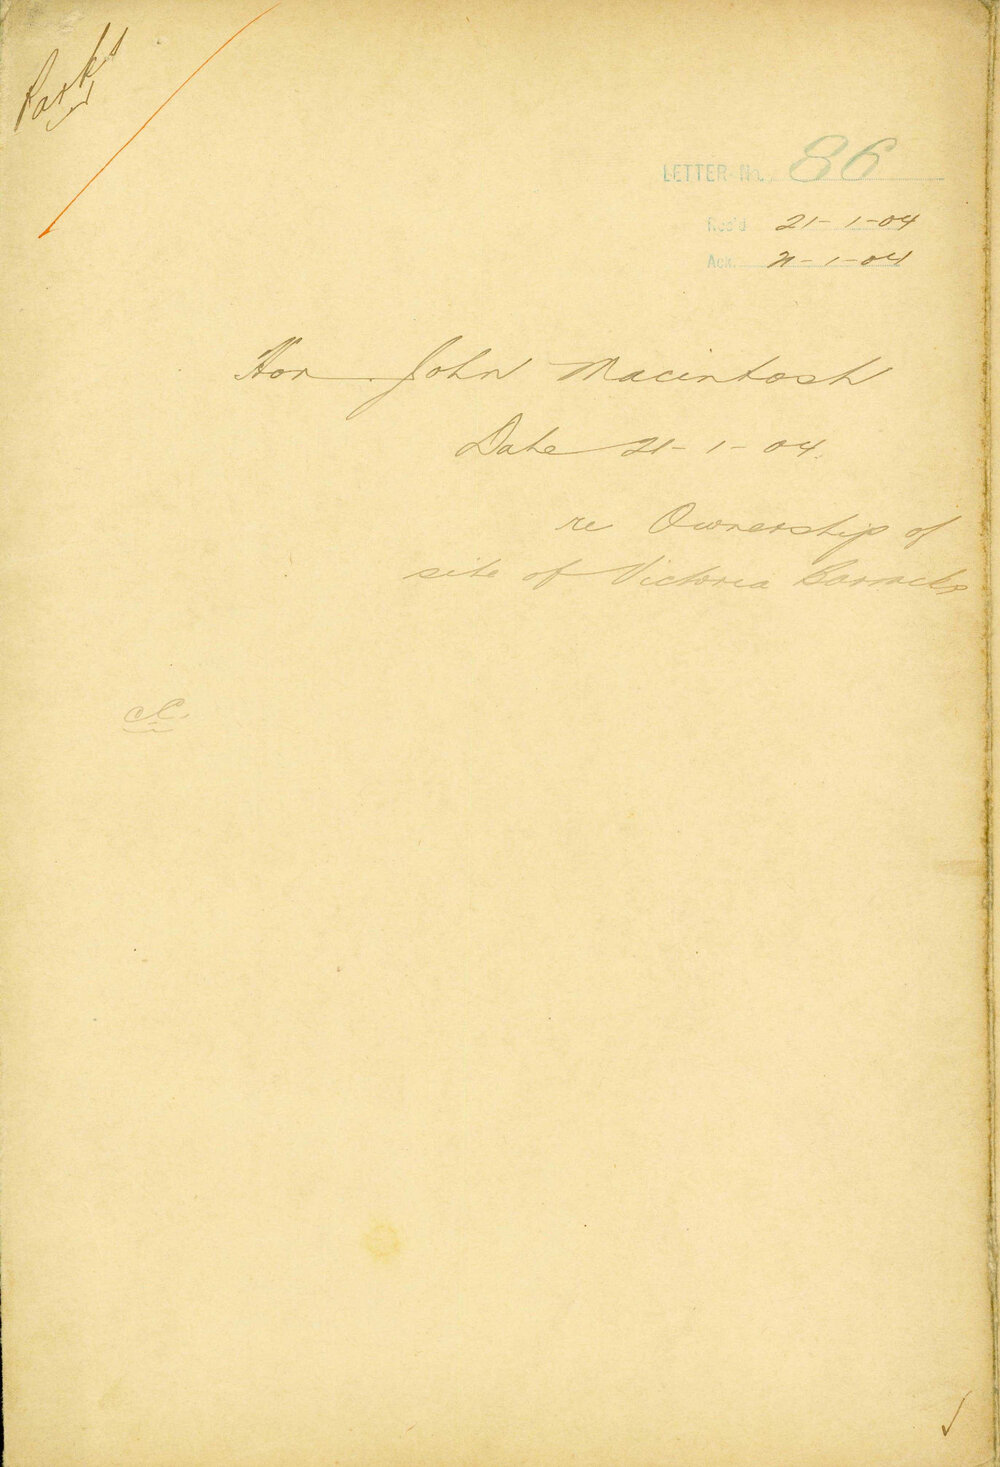 Parks
LETTER No. 86
Rec'd 21-1-04
Ack. 21-1-04
Hon. John Macintosh
Date 21-1-04.
re Ownership of
site of Victoria Barracks